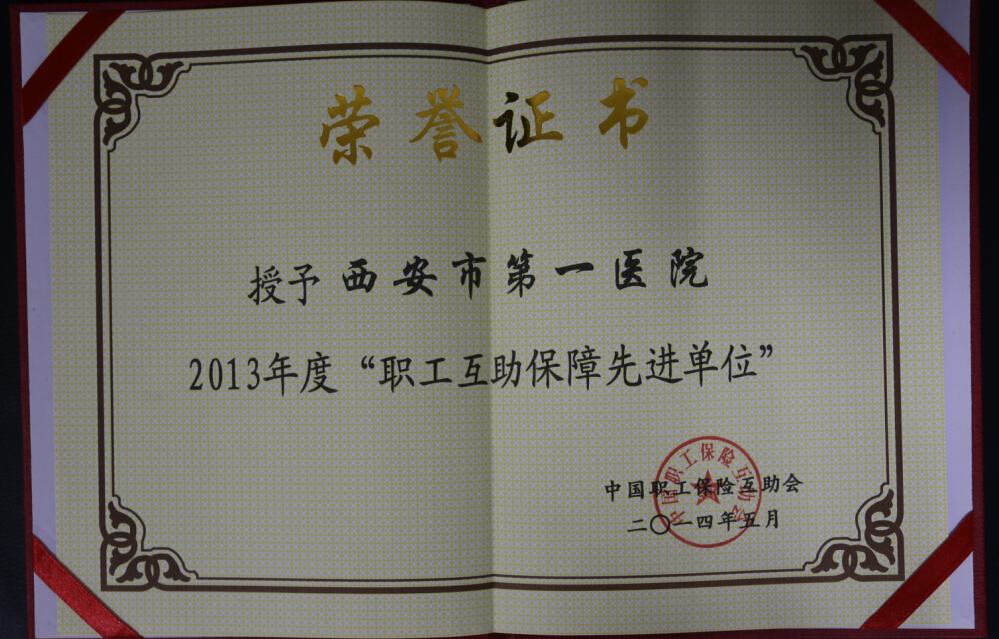 荣誉证书
授予 西安市第一医院
2013年度“职工互助保障先进单位”
中国职工保险互助会
二〇一四年五月
中国职工保险互助会